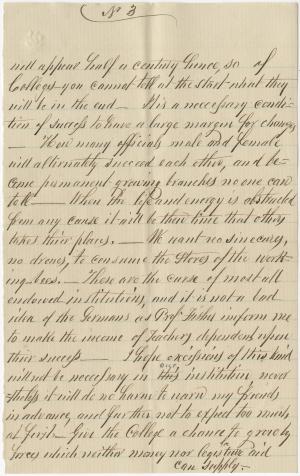 No 3
will appeal half a century hence, so of
Colleges - you cannot tell at the start what they
will be in the end - It is a necessary condi-
tion of success to leave a large margin for changes
- How many officials male and female
will alternately succeed each other, and be-
come permanent growing branches no one can
tell - When the life and energy is obstructed
from any cause it will be then time that others
takes their places. - We want no sinecures,
no drones, to consume the stores of the work-
ing bees. - These are the curse of most all
endowed institutions, and it is not a bad
idea of the Germans as Prof inform me
to make the income of Teachers dependent upon
their success - I hope excisions of this kind
will not be necessary in our institution never-
theless it will do no harm to warn my friends
in advance, and further not to expect too much
at first - Give the College a chance to grow by
forces which neither money nor legislative aid
can supply -